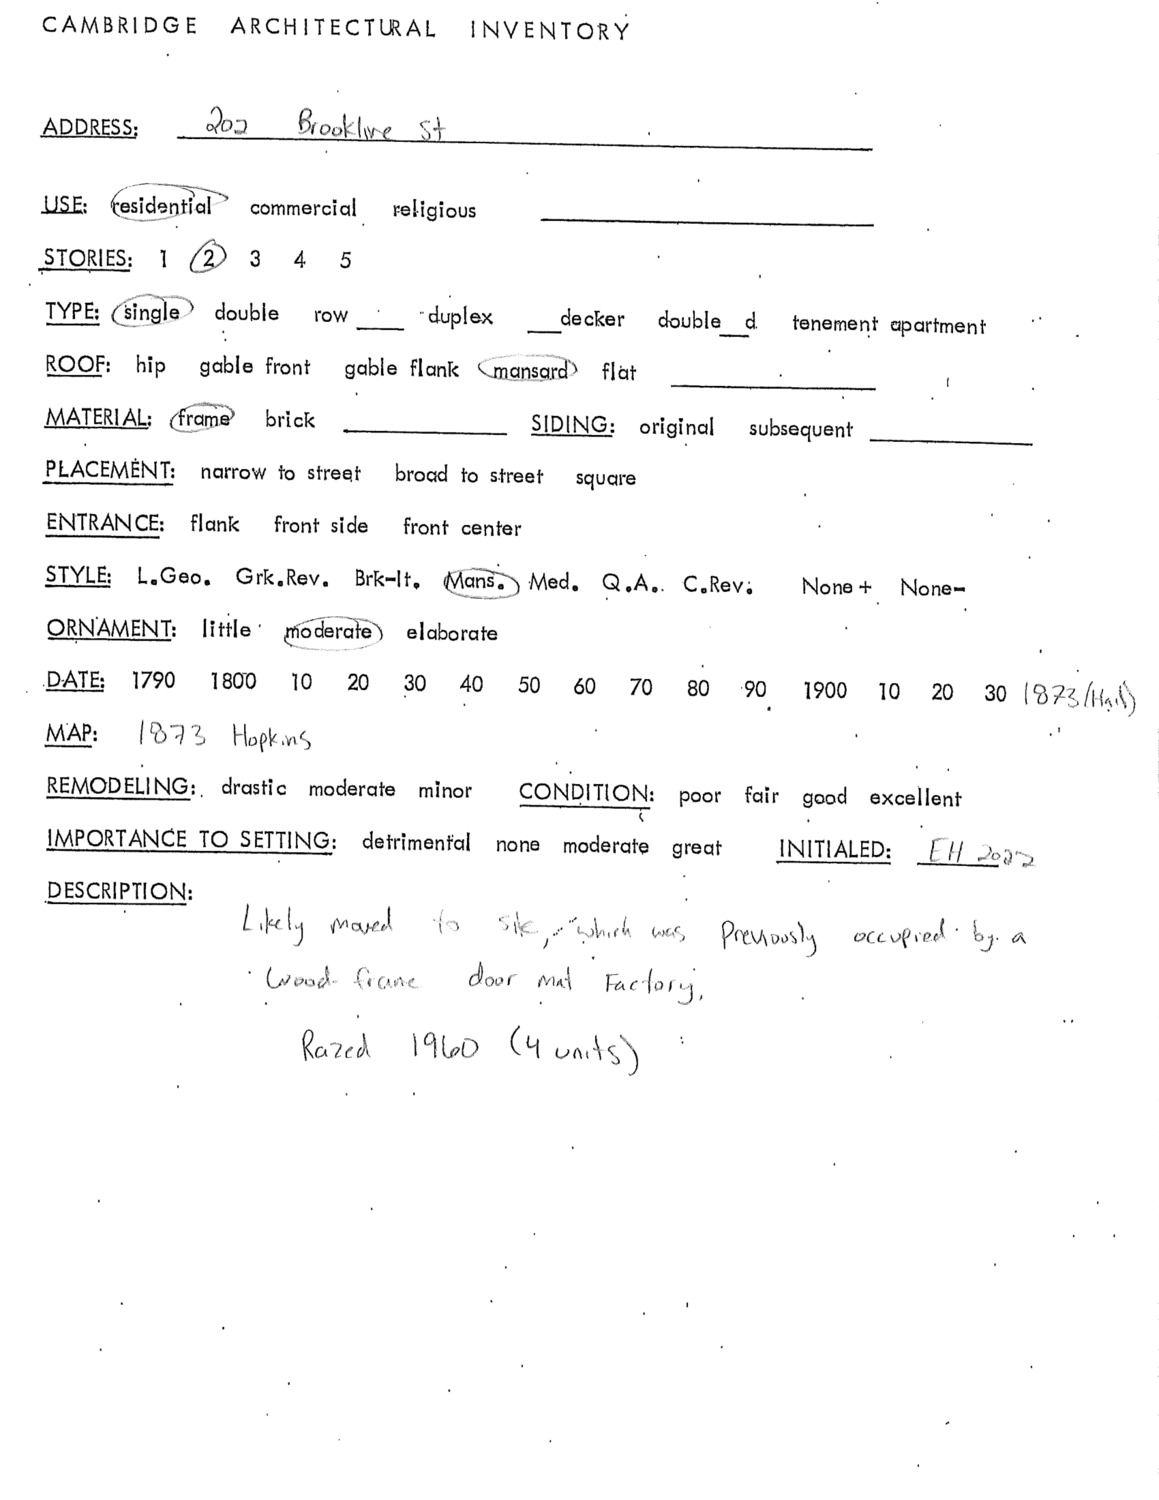 CAMBRIDGE ARCHITECTURAL INVENTORY
ADDRESS: 202 Brookline St
USE: residential commercial religious
STORIES: 1 2 3 4 5
TYPE: single double row ___ duplex ___decker double__d. tenement apartment
ROOF: hip gable front gable flank mansard flat
MATERIAL: frame brick SIDING: original subsequent
PLACEMENT: narrow to street broad to street square
ENTRANCE: flank front side front center
STYLE: L.Geo. Grk.Rev. Brk-It. Mans. Med. Q.A. C.Rev. None+ None-
ORNAMENT: little moderate elaborate
DATE: 1790 1800 10 20 30 40 50 60 70 80 90 1900 10 20 30 (1873/Hail)
MAP: 1873 Hopkins
REMODELING: drastic moderate minor CONDITION: poor fair good excellent
IMPORTANCE TO SETTING: detrimental none moderate great INITIALED: EH 2022
DESCRIPTION:
Likely moved to site, which was previously occupied by a
wood-frame door mat Factory.
Razed 1960 (4 units)